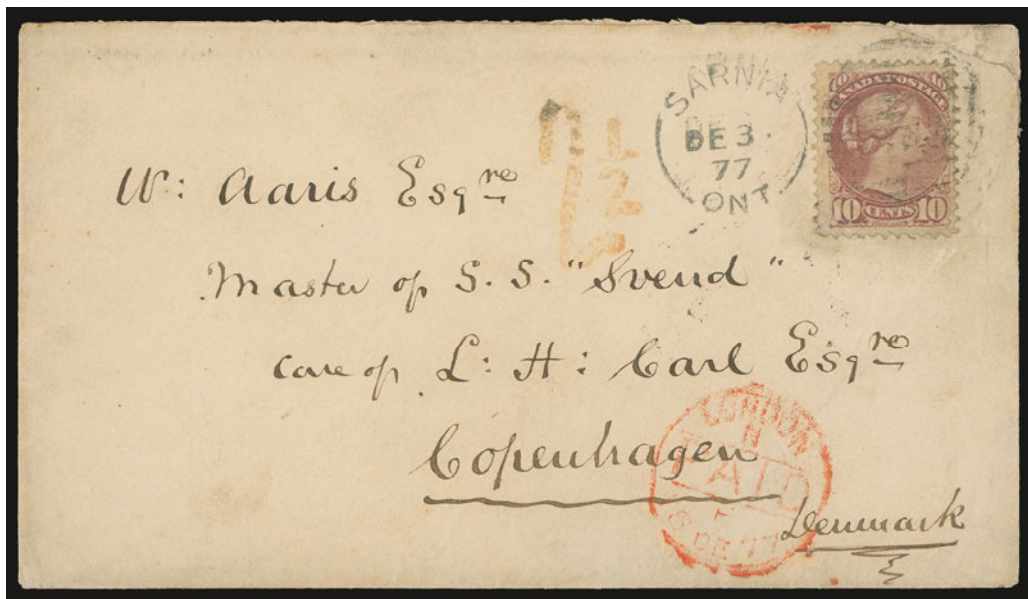 SARNIA
DE 3
77
ONT
CANADA POSTAGE
10 CENTS 10
½
W: Aaris Esqre
Master of S. S. "Svend"
care of L: H: Carl Esqre
Copenhagen
Denmark
LONDON
N
PAID
DE 77